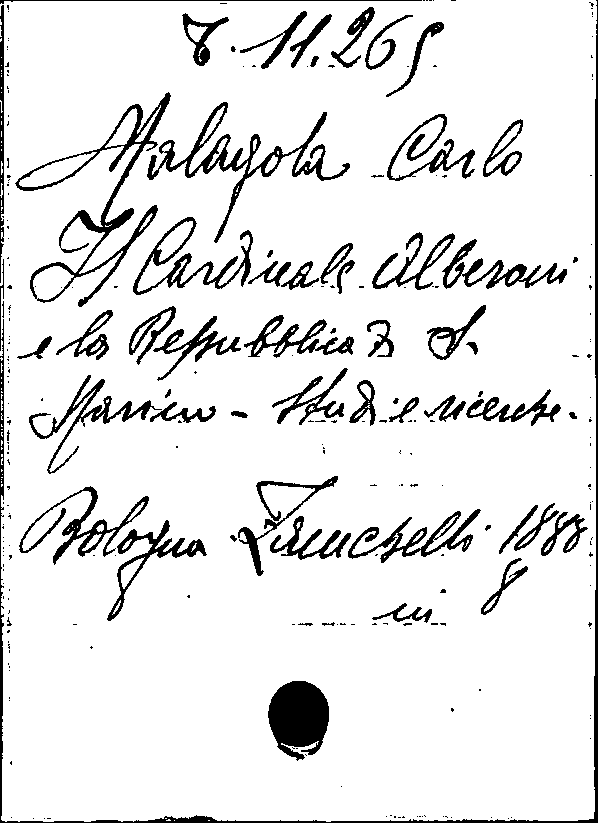 8. 11. 265
Malagola Carlo
Il Cardinale Alberoni
e la Repubblica di S.
Marino - Studi e ricerche.
Bologna Zanichelli 1888
in 8